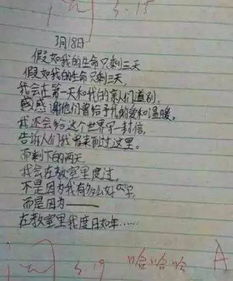 3.15
3月18日
假如我的生命只剩三天
假如我的生命只剩三天
我会在第一天和我的亲人们道别,
感谢他们曾给予我的爱和温暖,
我还会给这个世界写一封信,
告诉人们我曾来到过这里。
而剩下的两天
我会在教室里度过,
不是因为我有多么好学,
而是因为——
在教室里我度日如年……
3.19
哈哈哈
A